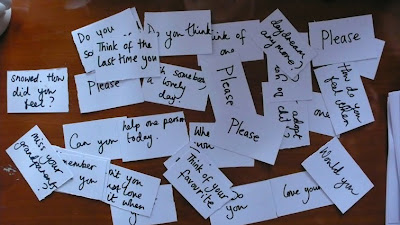 Do you
so
Think of the
last time you
Do you think
think of
one
daydream
any more?
Please
snowed. How
did you
feel?
Please
with somebody
a lovely
day?
Please
How do
you
feel when
adopt
one
Can you
help one person
today.
Please
miss your
grandparents
remember
you
love
it when
Think of your
favourite
you
Love your
Would you